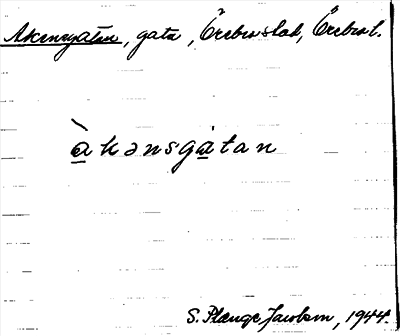 Akensgatan, gata, Örebro stad, Örebro l.
àkənsgàtan
S. Plænge Jacobson, 1944.